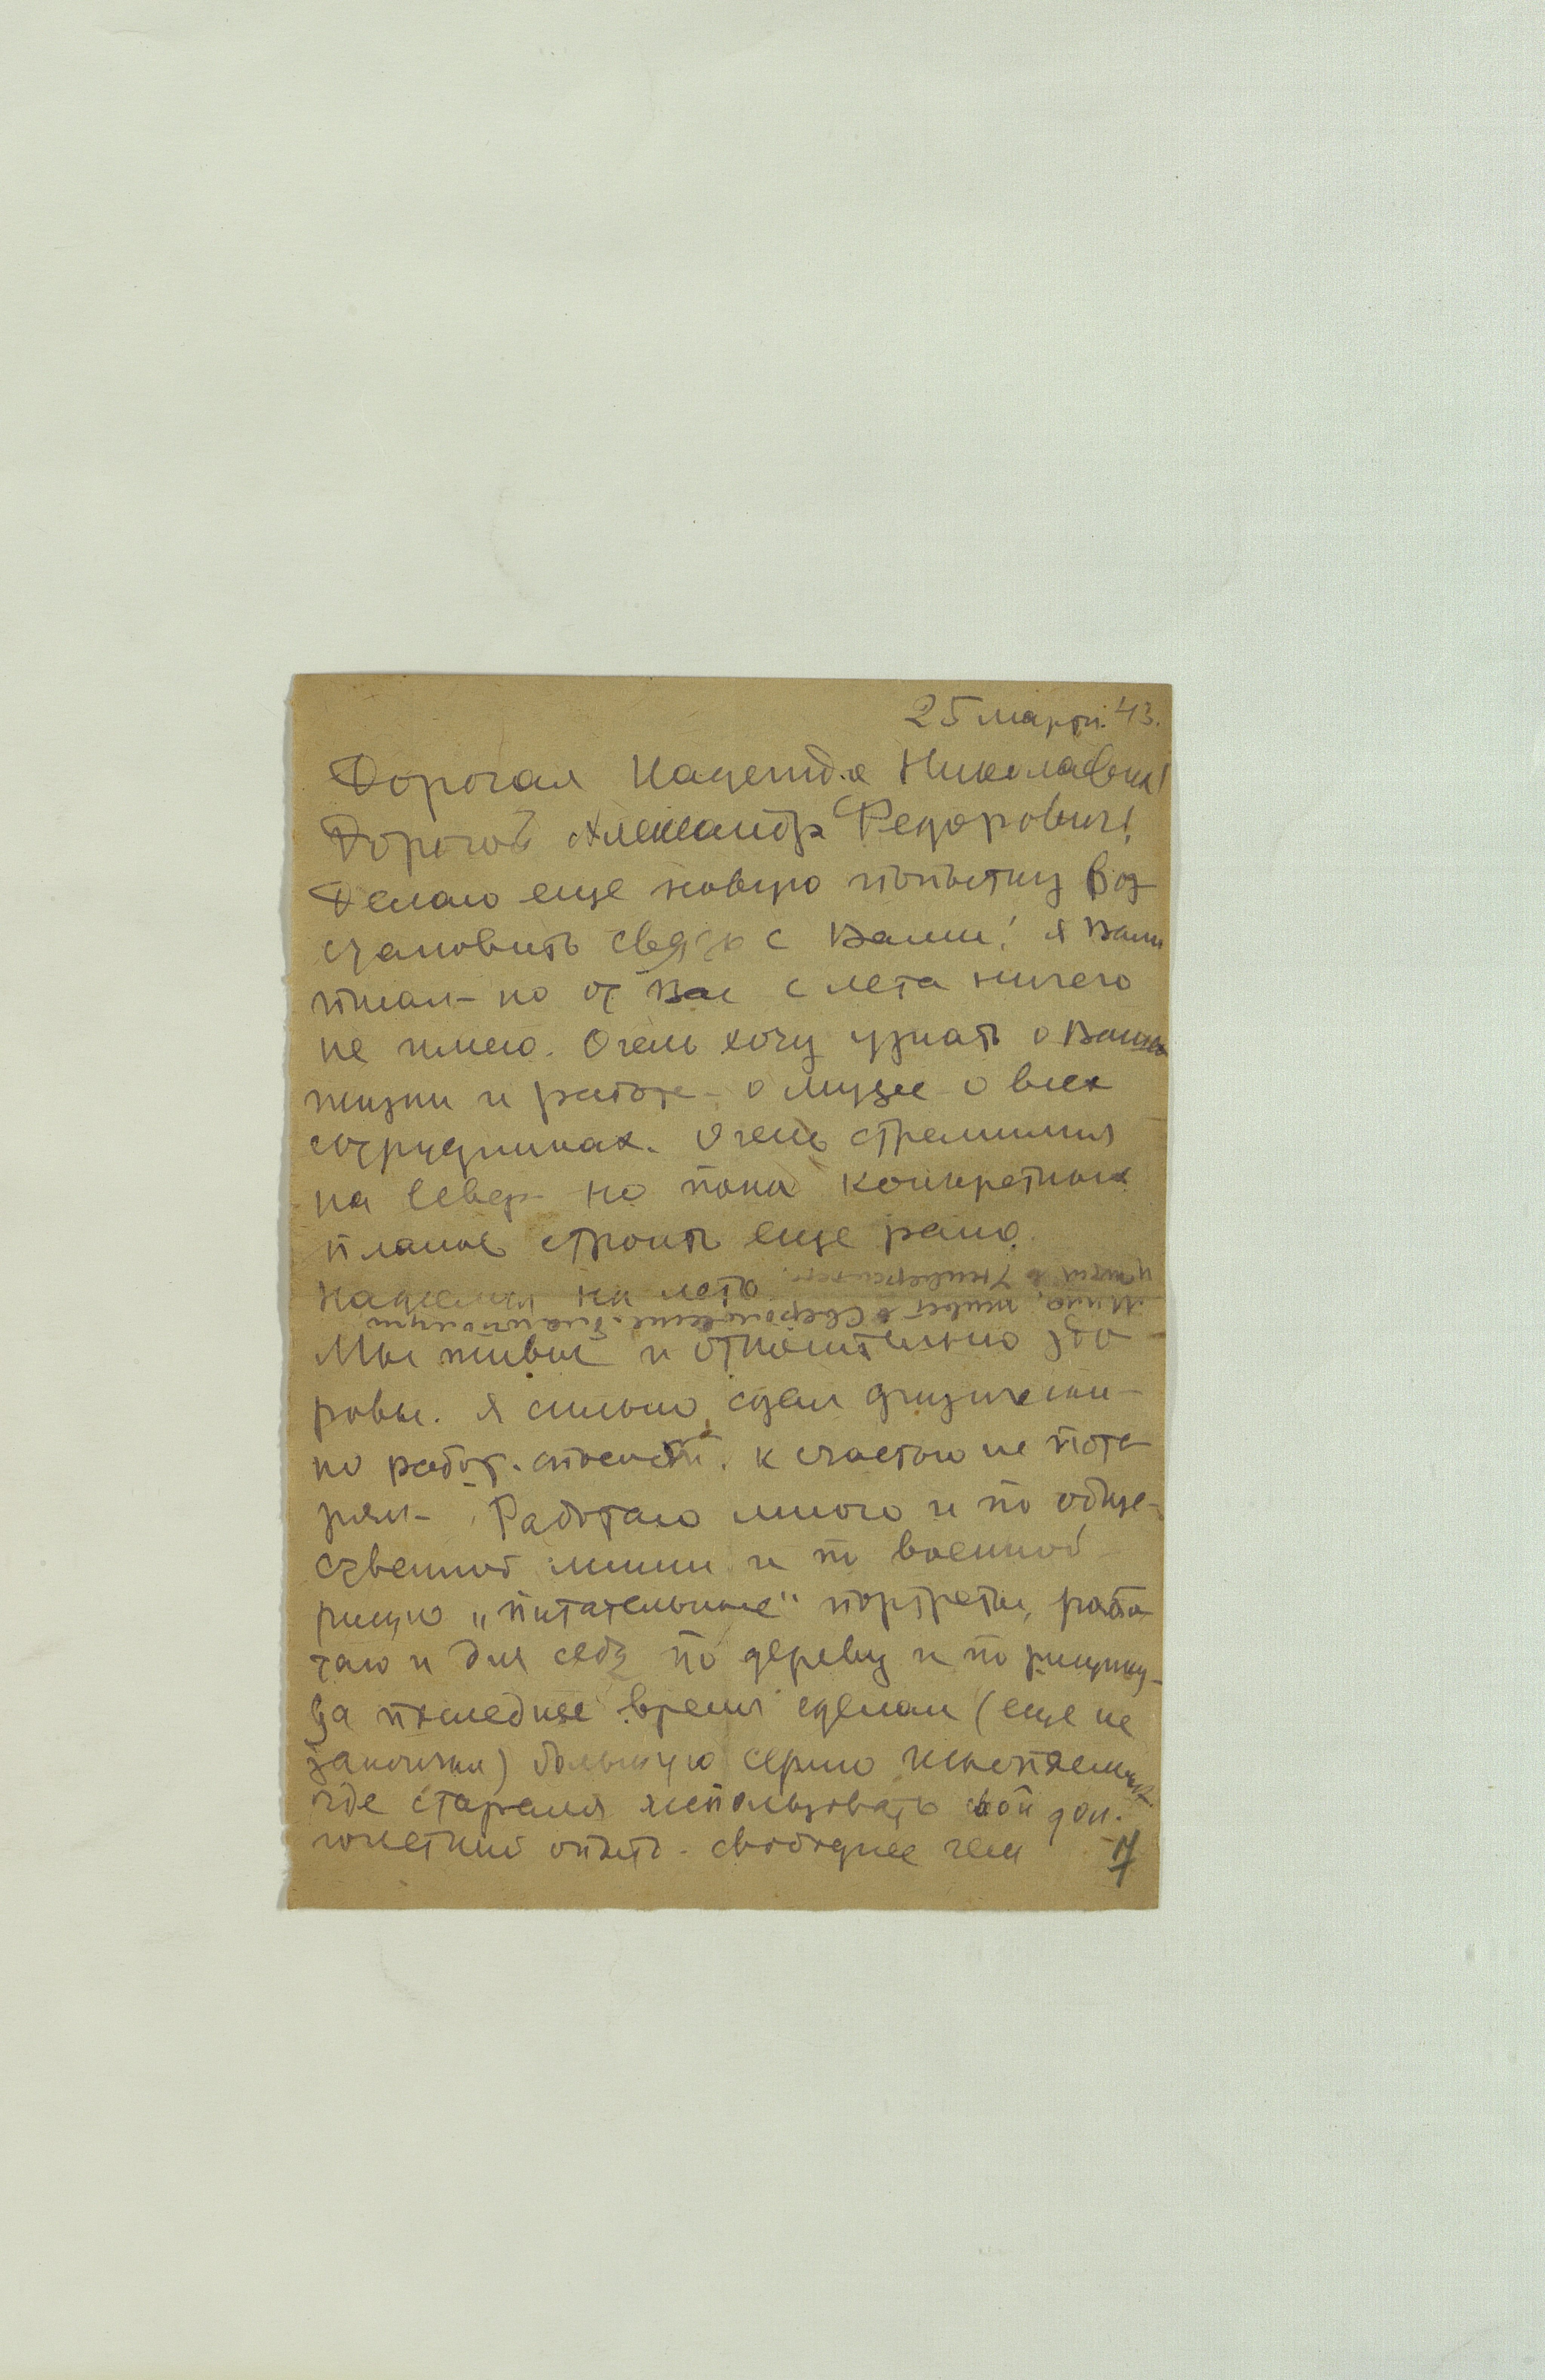 25 марта. 43.
Дорогая Надежда Николаевна!
Дорогой Александр Федорович!
Делаю еще новую попытку воз
становить связь с Вами! я Вам
писал – но от Вас с лета ничего
не имею. Очень хочу узнать о Вашей
жизни и работе – о музее о всех
сотрудниках. Очень стремимся
на север – но пока конкретных
планов строить еще рано.
надеемся на лето
Мы живы и относительно здо
ровы. я сильно сдал физически –
но работ. способности. к счастью не поте
рял – Работаю много и по обще-
ственной линии и по военной
рисую „питательные" портреты, рабо
таю и для себя по дереву и по рисунку –
за последнее время сделал (еще не
закончил) большую серию ископаемых
где старался использовать свой дол-
голетний опыт. свободнее чем
17
Мина, живет в Ставрополе